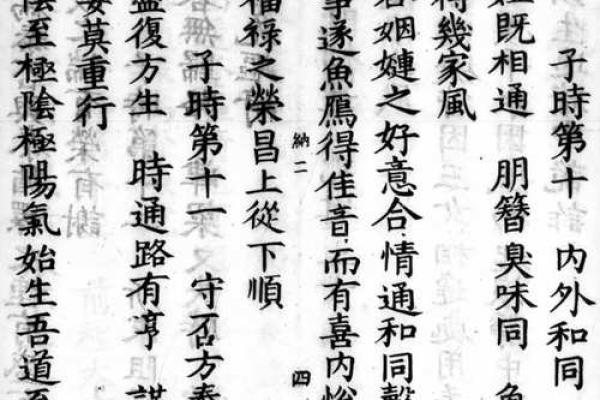 子時第十 內外和同
既相通 朋簪臭味同
幾家風
姻嫾之好意合情通和同
事遂魚鴈得佳音而有喜內
納二 四
福祿之榮昌上從下順
子時第十一 守否方泰
復方生 時通路有亨 謀
莫重行
陰至極陰極陽氣始生吾道